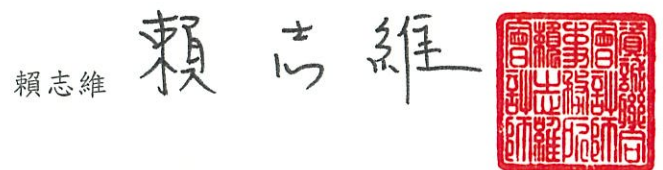 賴志維 賴志維
資誠聯合
會計師
事務所
賴志維
會計師